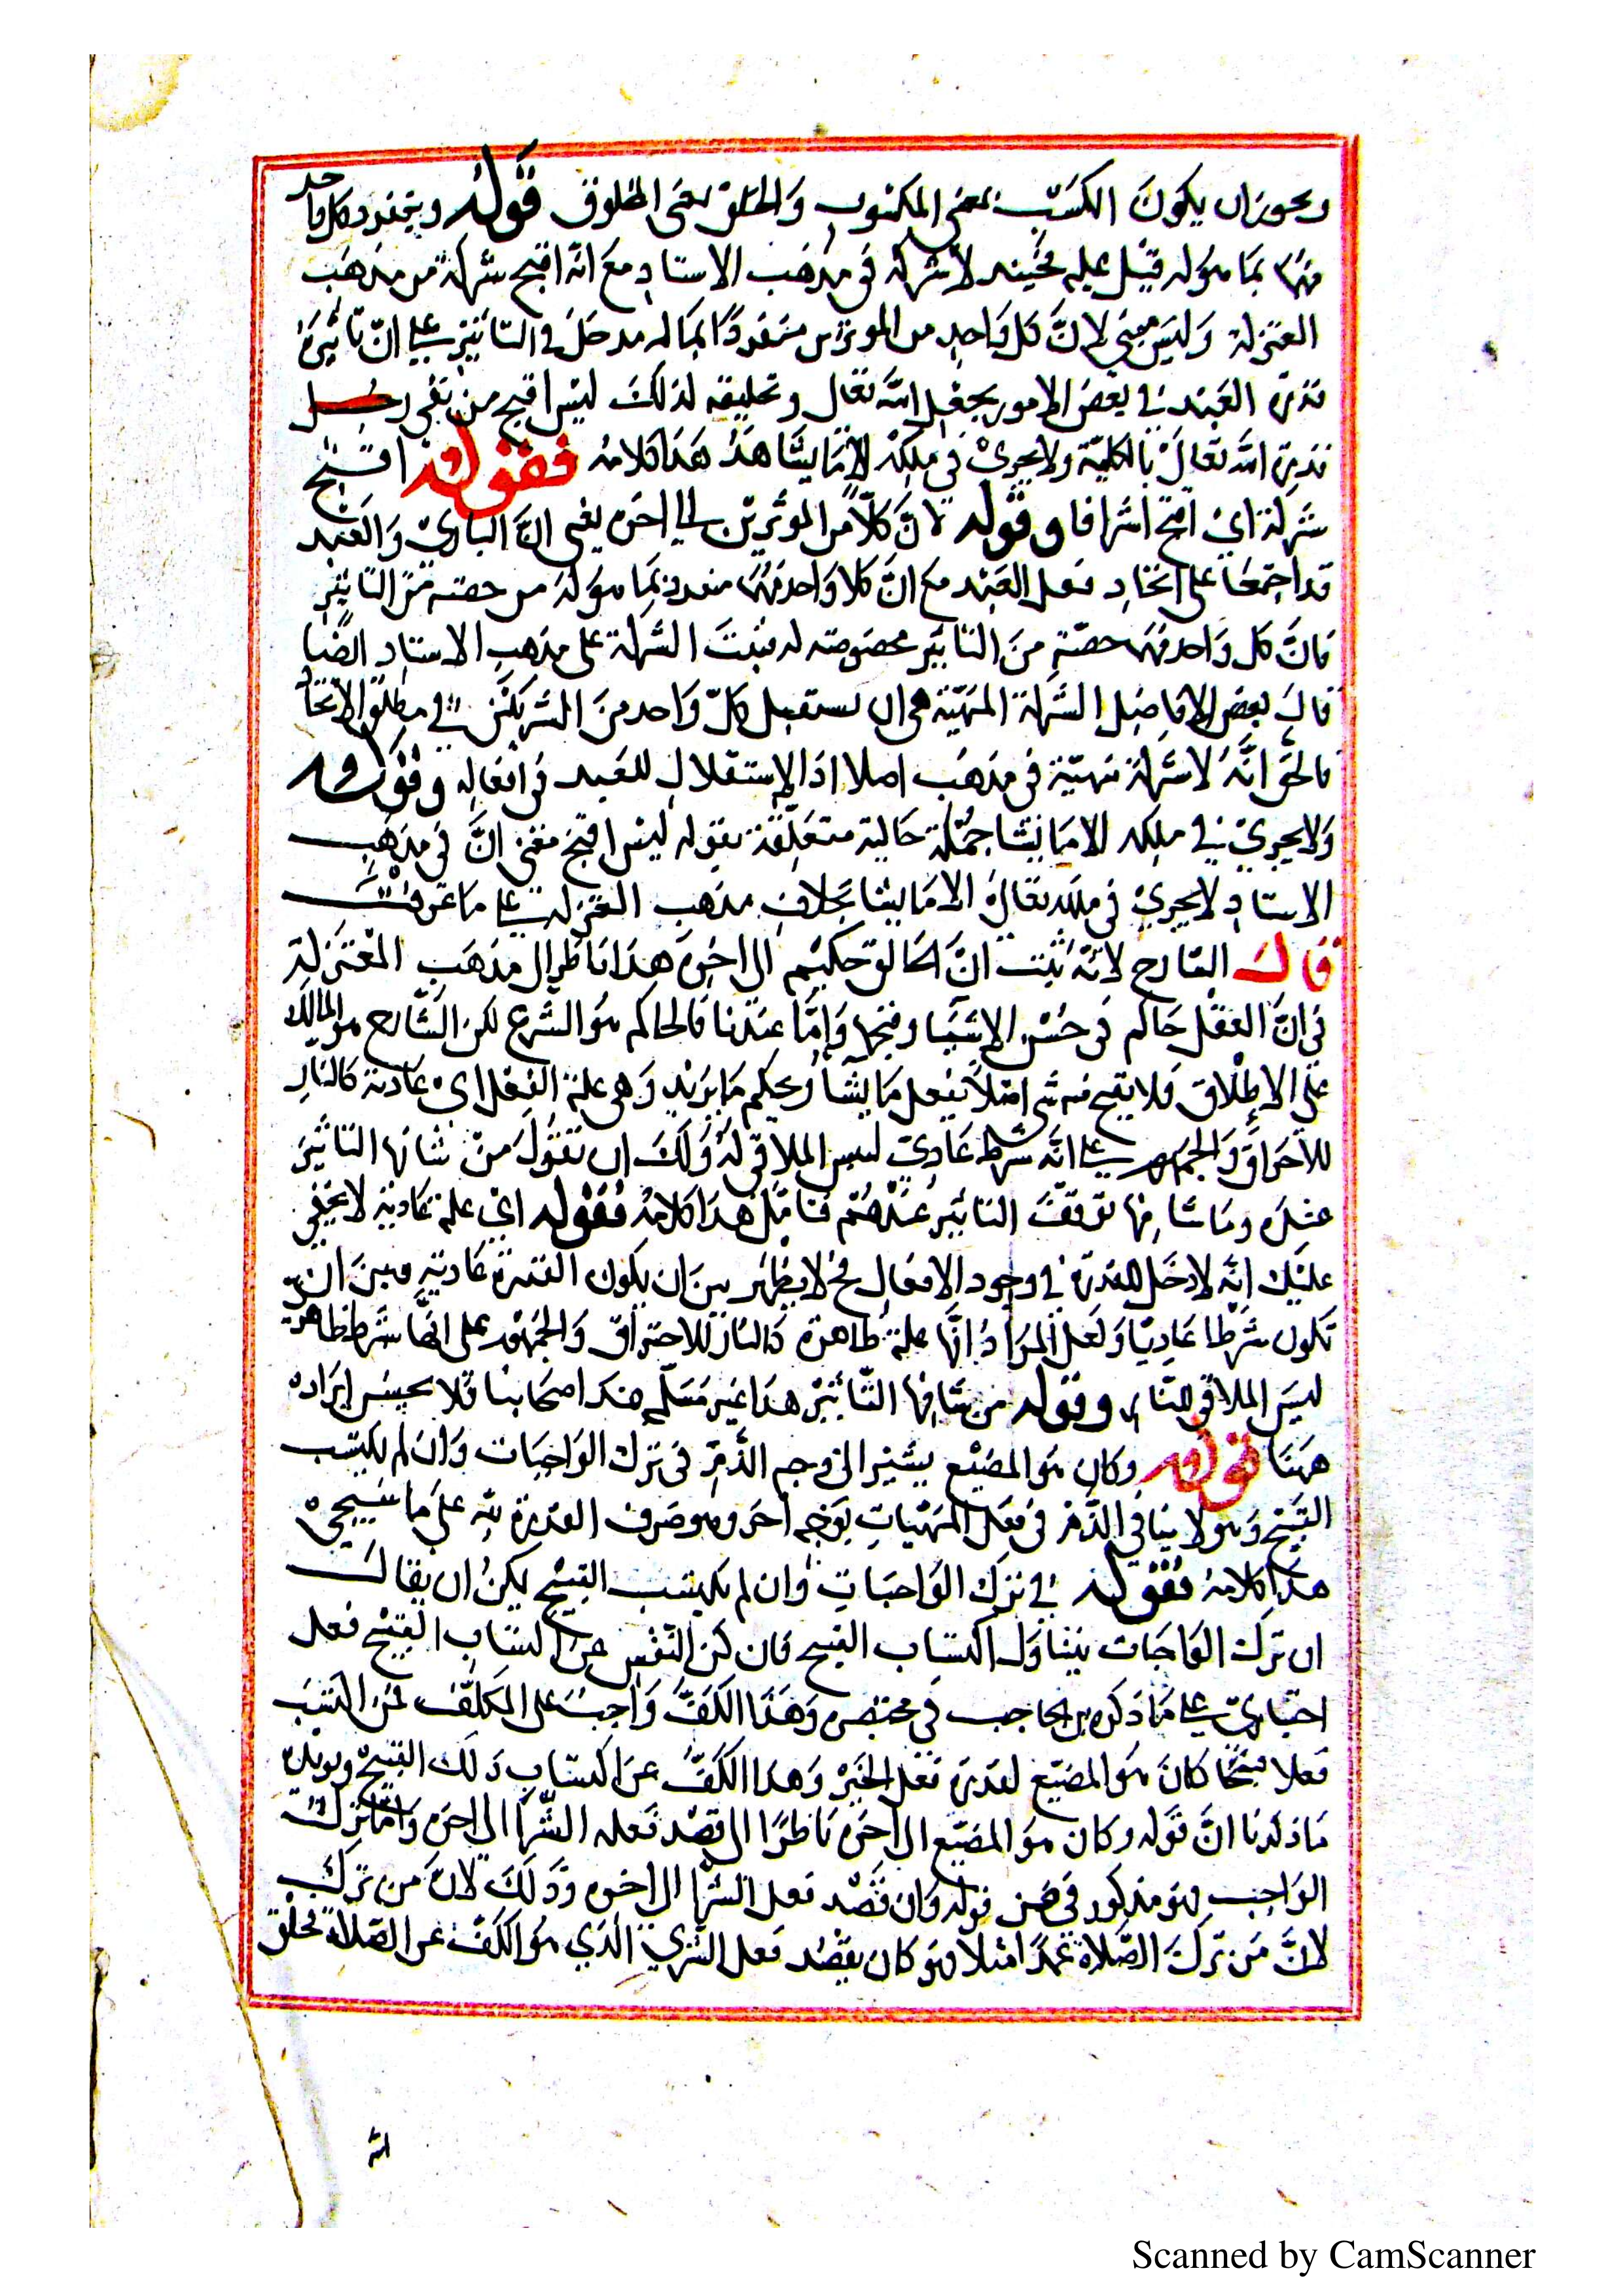 ويجوز ان يكون الكسب بمعنى المكسوب والخلق بمعنى المخلوق قوله وينفرد كل واحد
منهما بما هو له قيل عليه فحينئذ لا شركة في مذهب الاستاد مع انه اقبح شركة من مذهب
المعتزلة وليس معنى لان كل واحد من الموثرين منفردا بماله مدخل في التاثير على ان تاثيره
قدرة العبد في بعض الامور بجعل الله تعالى وتخليقه لذلك ليس اقبح من نفي
قدرة الله تعالى بالكلية ولا يجري في ملكه الا ما يشاء هذا كلامه فقوله اقبح
شركة اي اقبح اشراكا وقوله لان كلا من الموثرين الى اخره يعني ان الباري والعبد
قد اجتمعا على اتخاد فعل العبد مع ان كلا واحد منهما منفرد بما هو له من حصته من التاثير
فان كل واحد منهما حصة من التاثير مخصوصته له فثبت الشركة على مذهب الاستاد ايضا
قال بعض الافاضل الشركة المنهية هي ان يستقبل كل واحد من الشريكين في مطلق الاتحا
فالحق انه لا شركة منهية في مذهب اصلا اذ لا استقلال للعبد في افعاله وقوله
ولا يجري في ملكه الا ما يشا جملة حالية متعلقة بقوله ليس اقبح معنى ان في مذهب
الاستاد لا يجري في ملكه تعالى الا ما يشا بخلاف مذهب المعتزلة على ما عرفت
قال الشارح لانه ثبت ان الخالق حكيم الى اخره هذا ناظر الى مذهب المعتزلة
في ان العقل حاكم في حسن الاشيا وقبحها واما عندنا فالحاكم هو الشرع لكن الشارع هو المالك
على الاطلاق فلا يقبح منه شي اصلا يفعل ما يشا ويحكم ما يريد وهي علة الفعل اي عادية كالنار
للاحراق والجمهور على انه شرط عادي ليبس الملاقي له ولك ان تقول من شانها التاثير
عنده وما شانها توقف التاثير عندهم فتامل هذا كلامه فقوله اي علة عادية لا يخفى
عليك انه لا دخل للقدرة في وجود الافعال فح لا يظهر بين ان يكون القدرة عادية وبين ان
تكون شرطا عاديا ولعل المراد انها علة ظاهرة كالنار للاحتراق والجمهور على انها شرط ظاهر
ليبس الملاقي للنار وقوله من شانها التاثير هذا غير مسلم عند اصحابنا فلا يحسن ايراده
ههنا قوله وكان هو المضيع يشير الى وجه الذم في ترك الواجبات وان لم يكتسب
القبيح وهو لا ينافي الذم في فعل المنهيات بوجه اخر وهو صرف القدرة له على ما سيجي
هذا كلامه فقوله في ترك الواجبات وان لم يكتسب القبيح يمكن ان يقال
ان ترك الواجبات يتناول اكتساب القبيح فان كف النفس عن اكتساب القبيح فعل
اختياري على ما ذكره بن الحاجب في مختصره وهذا الكف واجب على المكلف فمن اكتسب
فعلا قبيحا كان هو المضيع لقدرة فعل الخير وهذا الكف عن اكتساب ذلك القبيح ويويده
ما ذكرنا ان قوله وكان هو المضيع الى اخره ناظرا الى قصد فعله الشر الى اخره واما ترك
الواجب فهو مذكور في ضمن قوله وان قصد فعل الشر الى اخره وذلك لان من ترك
لان من ترك الصلاة عمدا مثلا فهو كان يقصد فعل الشر الذي هو الكف عن الصلاة فخلق
الله
Scanned by CamScanner